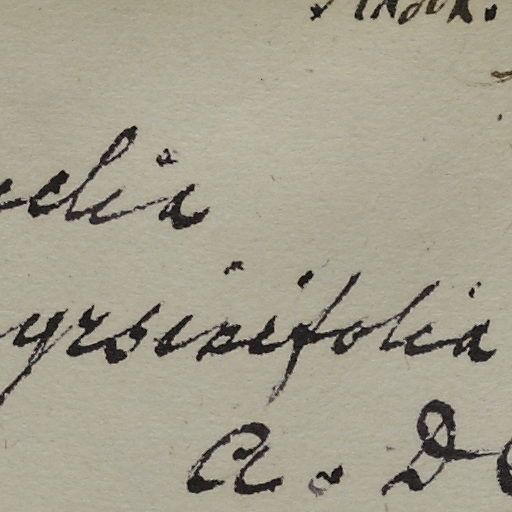 elia
yrsinifolia
A. D